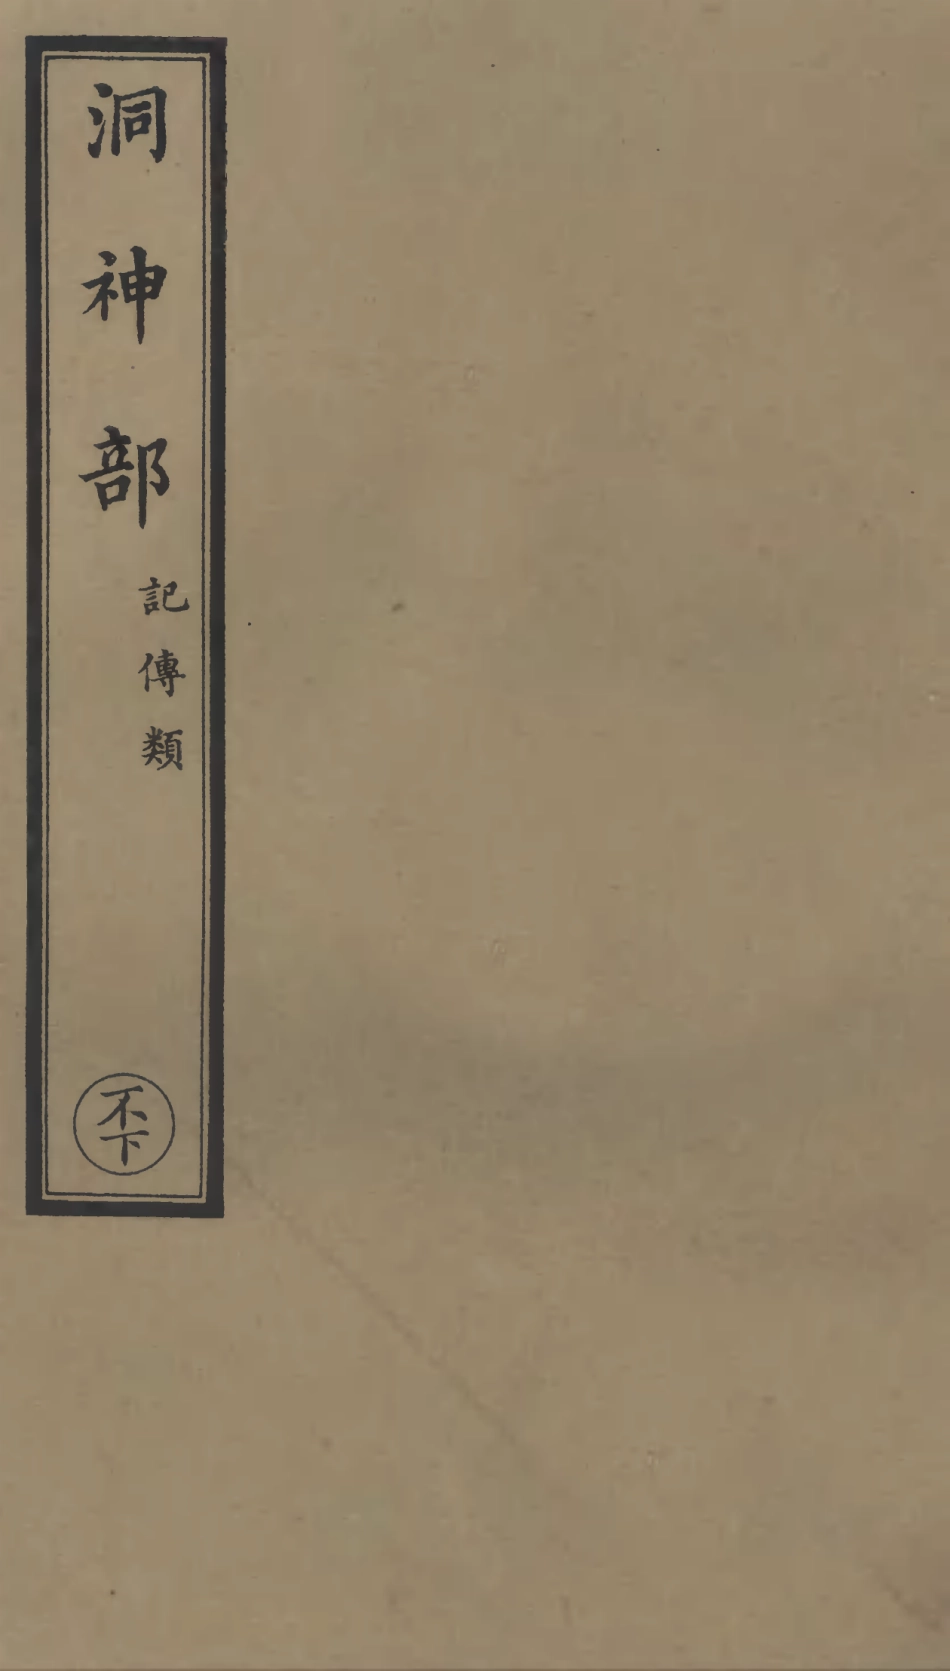 洞神部
記傳類
不下